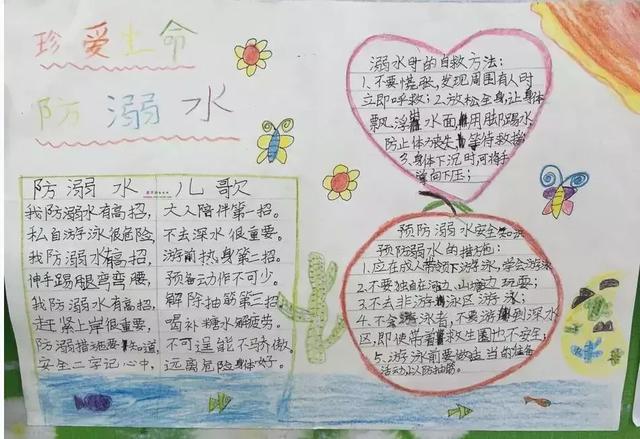 珍爱生命
防溺水
防溺水 儿歌
我防溺水有高招,大人陪伴第一招。
私自游泳很危险,不去深水很重要。
我防溺水有高招,游前热身第二招。
伸手踢腿弯弯腰,预备动作不可少。
我防溺水有高招,解除抽筋第三招。
赶紧上岸很重要,喝补糖水解疲劳。
防溺措施要知道,不可逞能不骄傲。
安全二字记心中,远离危险身体好。
溺水时的自救方法:
1、不要慌张,发现周围有人时
立即呼救;2、放松全身,让身体
飘浮水面,用脚踢水,
防止体力丧失,等待救援
3、身体下沉时可将手
掌向下压;
预防溺水安全知识
预防溺水的措施:
1、应在成人带领下游泳,学会游泳
2、不要独自在河边、山塘边玩耍;
3、不去非游泳区游泳;
4、不会游泳者,不要游到深水
区,即使带着救生圈也不安全;
5、游泳前要做适当的准备
活动,以防抽筋。